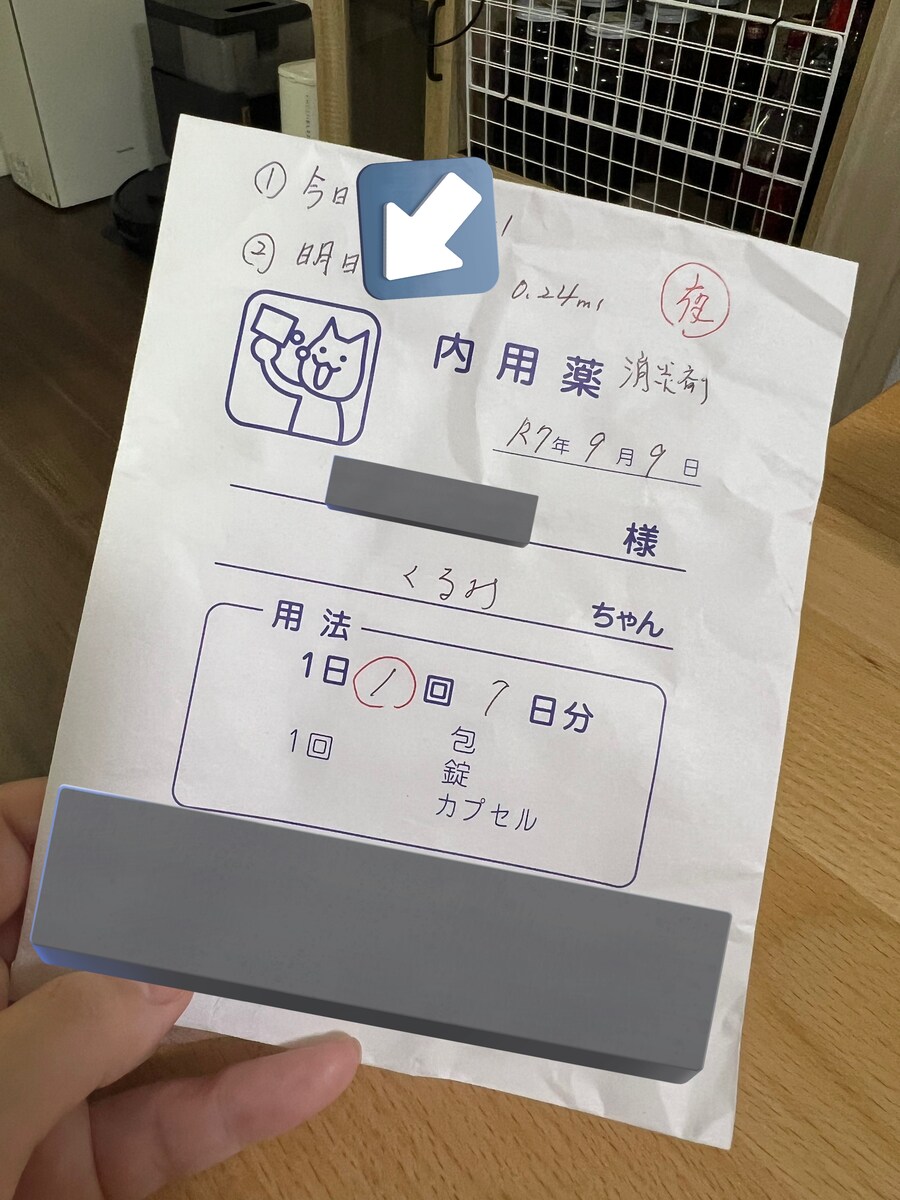 ① 今日
② 明日 0.24ml
夜
内用薬 消炎剤
R7年 9月 9日
様
くるみ ちゃん
用法
1日 1 回 7 日分
1回 包
錠
カプセル